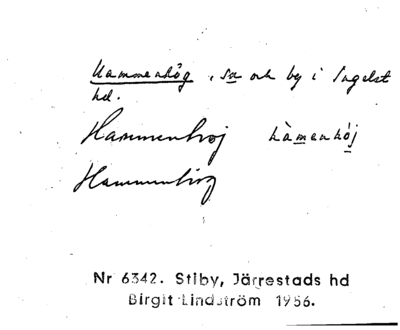 Hammenhög, sn och by i Ingelst
hd.
Hammenhoj hàmenhój
Hammenhög
Nr 6342. Stiby, Järrestads hd
Birgit Lindström 1956.